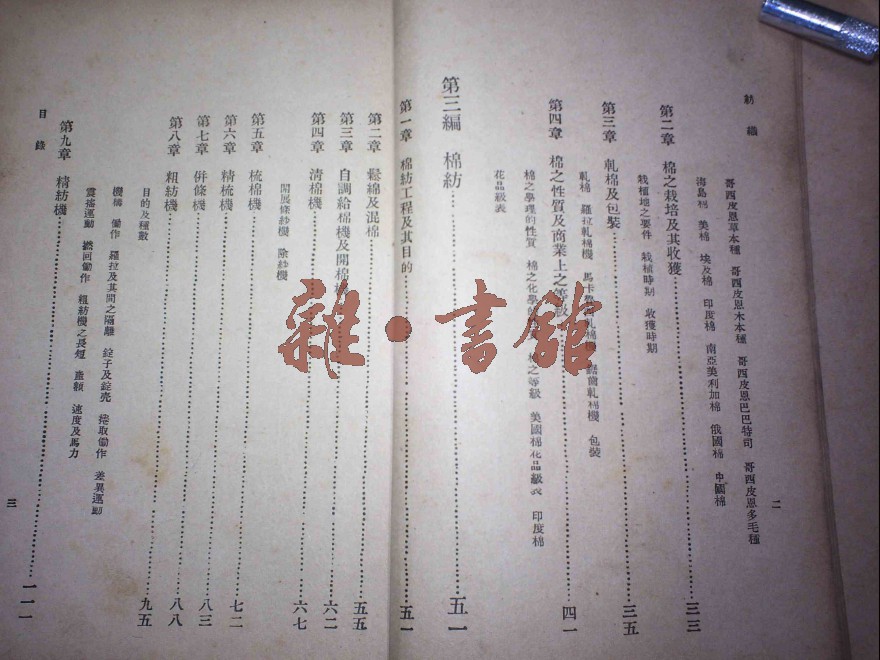 紡織
二
哥西皮恩草本種 哥西皮恩木本種 哥西皮恩巴巴特司 哥西皮恩多毛種
海島棉 美棉 埃及棉 印度棉 南亞美利加棉 俄國棉 中國棉
第二章 棉之栽培及其收獲…三三
栽植地之要件 栽植時期 收獲時期
第三章 軋棉及包裝…三五
軋棉 羅拉軋棉機 馬卡 軋棉 鋸齒軋棉機 包裝
第四章 棉之性質及商業上之等級…四一
棉之學理的性質 棉之化學的 棉之等級 美國棉花品級表 印度棉
花品級表
第三編 棉紡…五一
第一章 棉紡工程及其目的…五一
第二章 鬆綿及混棉…五五
第三章 自調給棉機及開棉…六二
第四章 清棉機…六七
開展條紗機 除紗機
第五章 梳棉機…七二
第六章 精梳機…八三
第七章 併條機…八八
第八章 粗紡機…九五
目的及種數
機構 働作 羅拉及其間之隔離 錠子及錠壳 捲取働作 差異運動
震搖運動 撚回働作 粗紡機之長短 產額 速度及馬力
第九章 精紡機…一一一
目錄
三
雜·書館